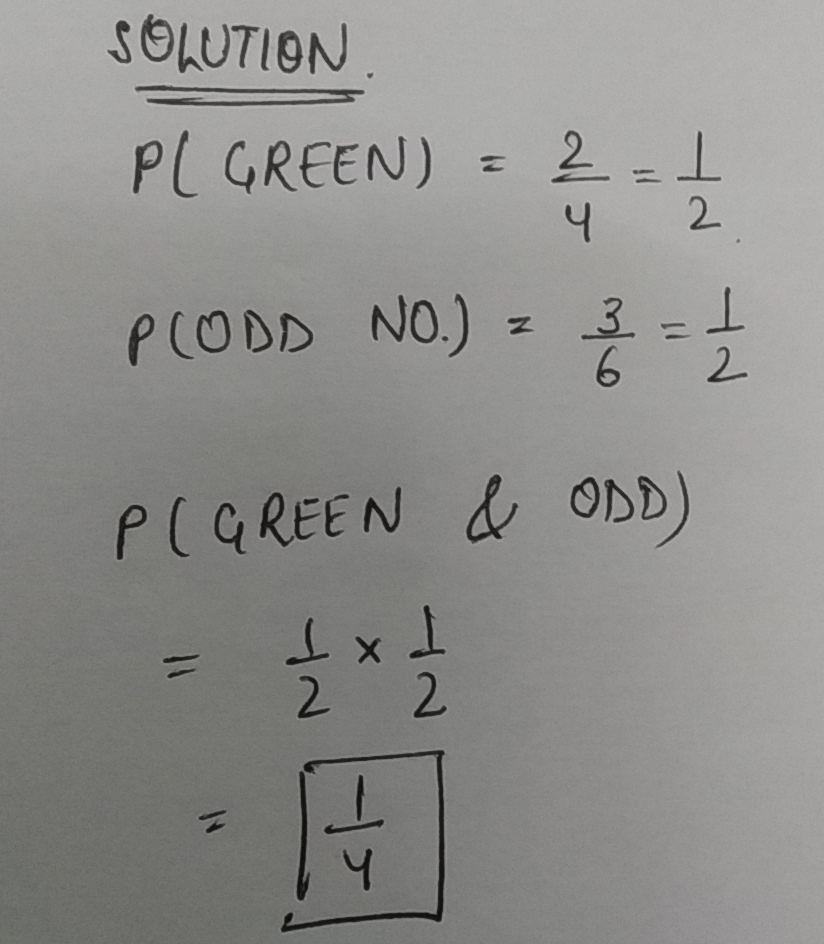 SOLUTION.
P( GREEN) = 2/4 = 1/2.
P(ODD NO.) = 3/6 = 1/2
P( GREEN & ODD)
= 1/2 x 1/2
= 1/4